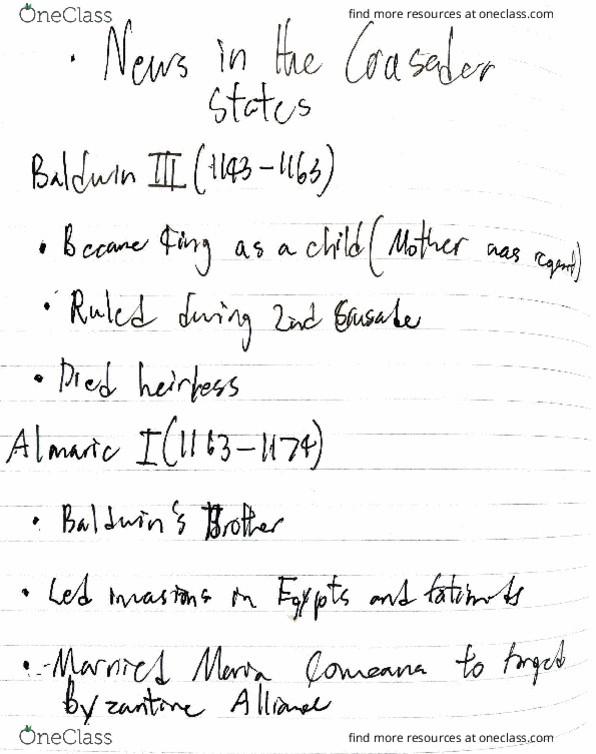 OneClass
find more resources at oneclass.com
• News in the Crusader
States
Baldwin III (1143-1163)
• Became King as a child (Mother was regent)
• Ruled during 2nd Crusade
• Died heirless
Almaric I (1163-1174)
• Baldwin's Brother
• Led invasions in Egypts and fatimids
• Married Maria Comeana to forge
byzantine Alliance
OneClass
find more resources at oneclass.com